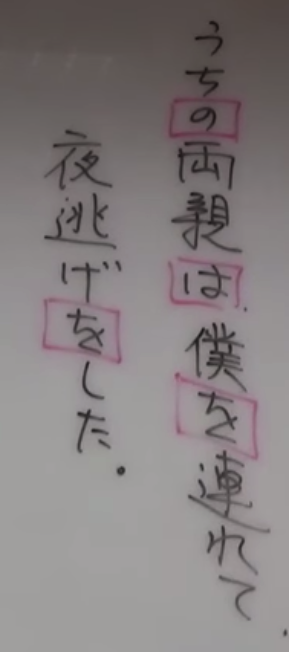 うちの両親は僕を連れて
夜逃げをした。